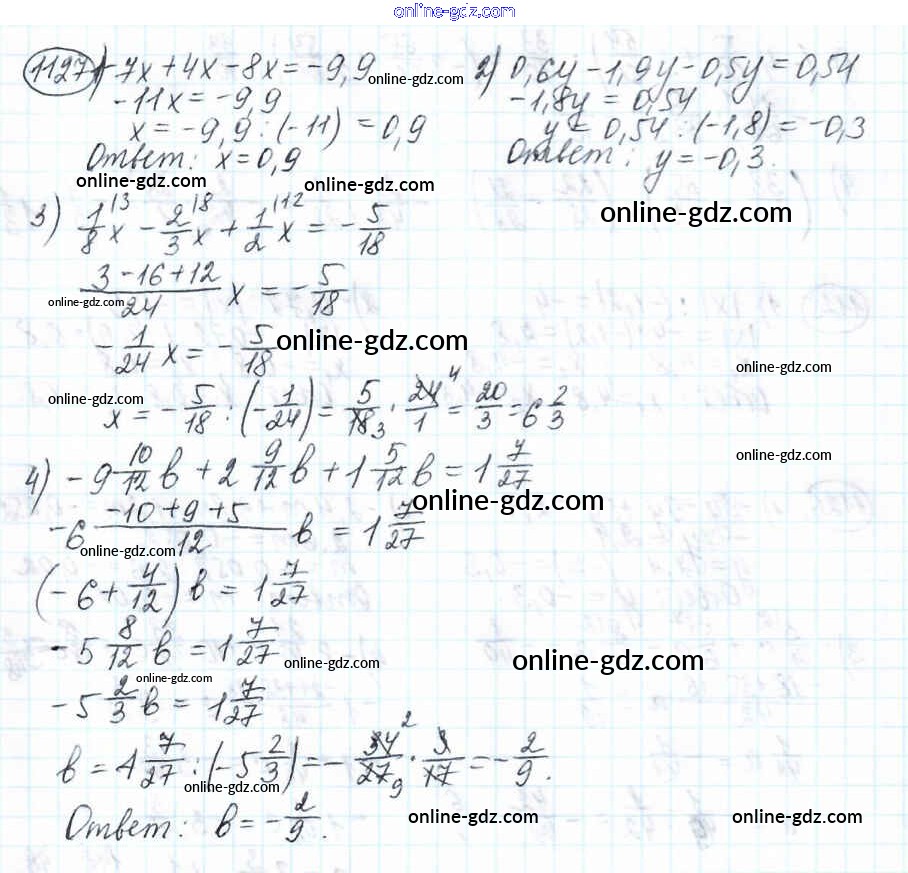 online-gdz.com
1127 1) -7x + 4x - 8x = -9,9 online-gdz.com 2) 0,6y - 1,9y - 0,5y = 0,54
-11x = -9,9 -1,8y = 0,54
x = -9,9 : (-11) = 0,9 y = 0,54 : (-1,8) = -0,3
Ответ: x = 0,9 Ответ: y = -0,3.
online-gdz.com online-gdz.com
3) 1/8 |3 x - 2/3 |8 x + 1/2 |12 x = - 5/18 online-gdz.com
(3 - 16 + 12)/24 x = - 5/18
online-gdz.com
- 1/24 x = - 5/18 online-gdz.com
online-gdz.com
online-gdz.com
x = - 5/18 : (- 1/24) = 5/18 3 · 24 4/1 = 20/3 = 6 2/3
online-gdz.com
4) -9 10/12 b + 2 9/12 b + 1 5/12 b = 1 7/27
online-gdz.com
-6 (-10 + 9 + 5)/12 b = 1 7/27
online-gdz.com
(-6 + 4/12) b = 1 7/27
-5 8/12 b = 1 7/27
online-gdz.com online-gdz.com
online-gdz.com
-5 2/3 b = 1 7/27
b = 1 7/27 : (-5 2/3) = - 34 2/27 9 · 3/17 = - 2/9.
online-gdz.com
Ответ: b = - 2/9.
online-gdz.com online-gdz.com